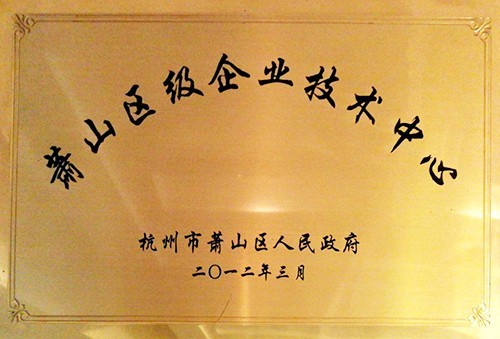 萧山区级企业技术中心
杭州市萧山区人民政府
二〇一二年三月